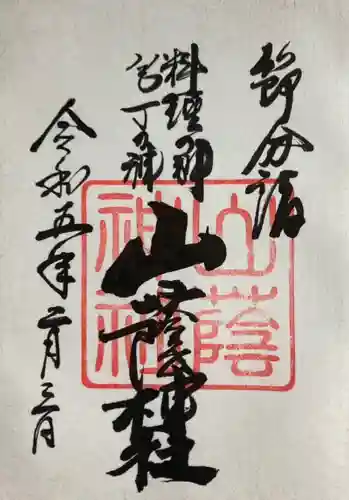 節分詣
料理の神
包丁の神
山蔭神社
山蔭神社
令和五年二月三日